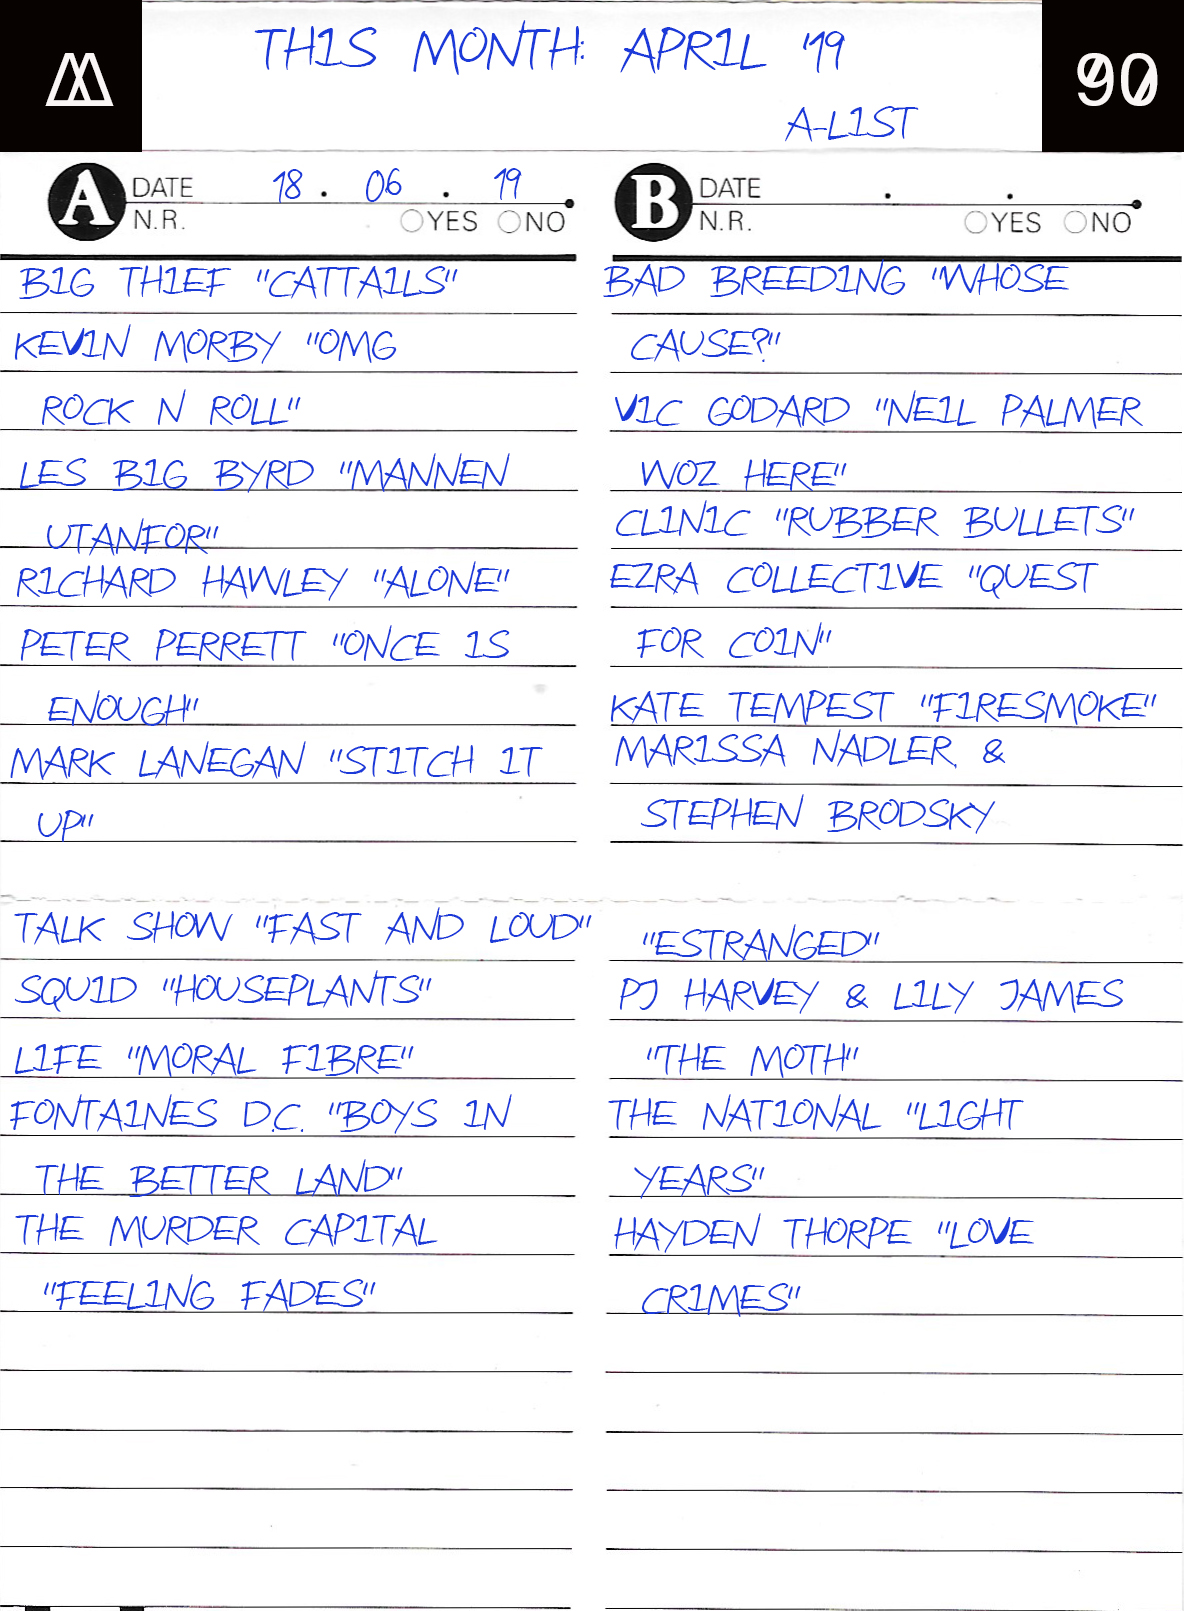 THIS MONTH: APRIL '19
A-LIST
90
A DATE 18 . 06 . 19
N.R. YES NO
BIG THIEF "CATTAILS"
KEVIN MORBY "OMG
ROCK N ROLL"
LES BIG BYRD "MANNEN
UTANFOR"
RICHARD HAWLEY "ALONE"
PETER PERRETT "ONCE IS
ENOUGH"
MARK LANEGAN "STITCH IT
UP"
TALK SHOW "FAST AND LOUD"
SQUID "HOUSEPLANTS"
LIFE "MORAL FIBRE"
FONTAINES D.C. "BOYS IN
THE BETTER LAND"
THE MURDER CAPITAL
"FEELING FADES"
B DATE . .
N.R. YES NO
BAD BREEDING "WHOSE
CAUSE?"
VIC GODARD "NEIL PALMER
WOZ HERE"
CLINIC "RUBBER BULLETS"
EZRA COLLECTIVE "QUEST
FOR COIN"
KATE TEMPEST "FIRESMOKE"
MARISSA NADLER &
STEPHEN BRODSKY
"ESTRANGED"
PJ HARVEY & LILY JAMES
"THE MOTH"
THE NATIONAL "LIGHT
YEARS"
HAYDEN THORPE "LOVE
CRIMES"